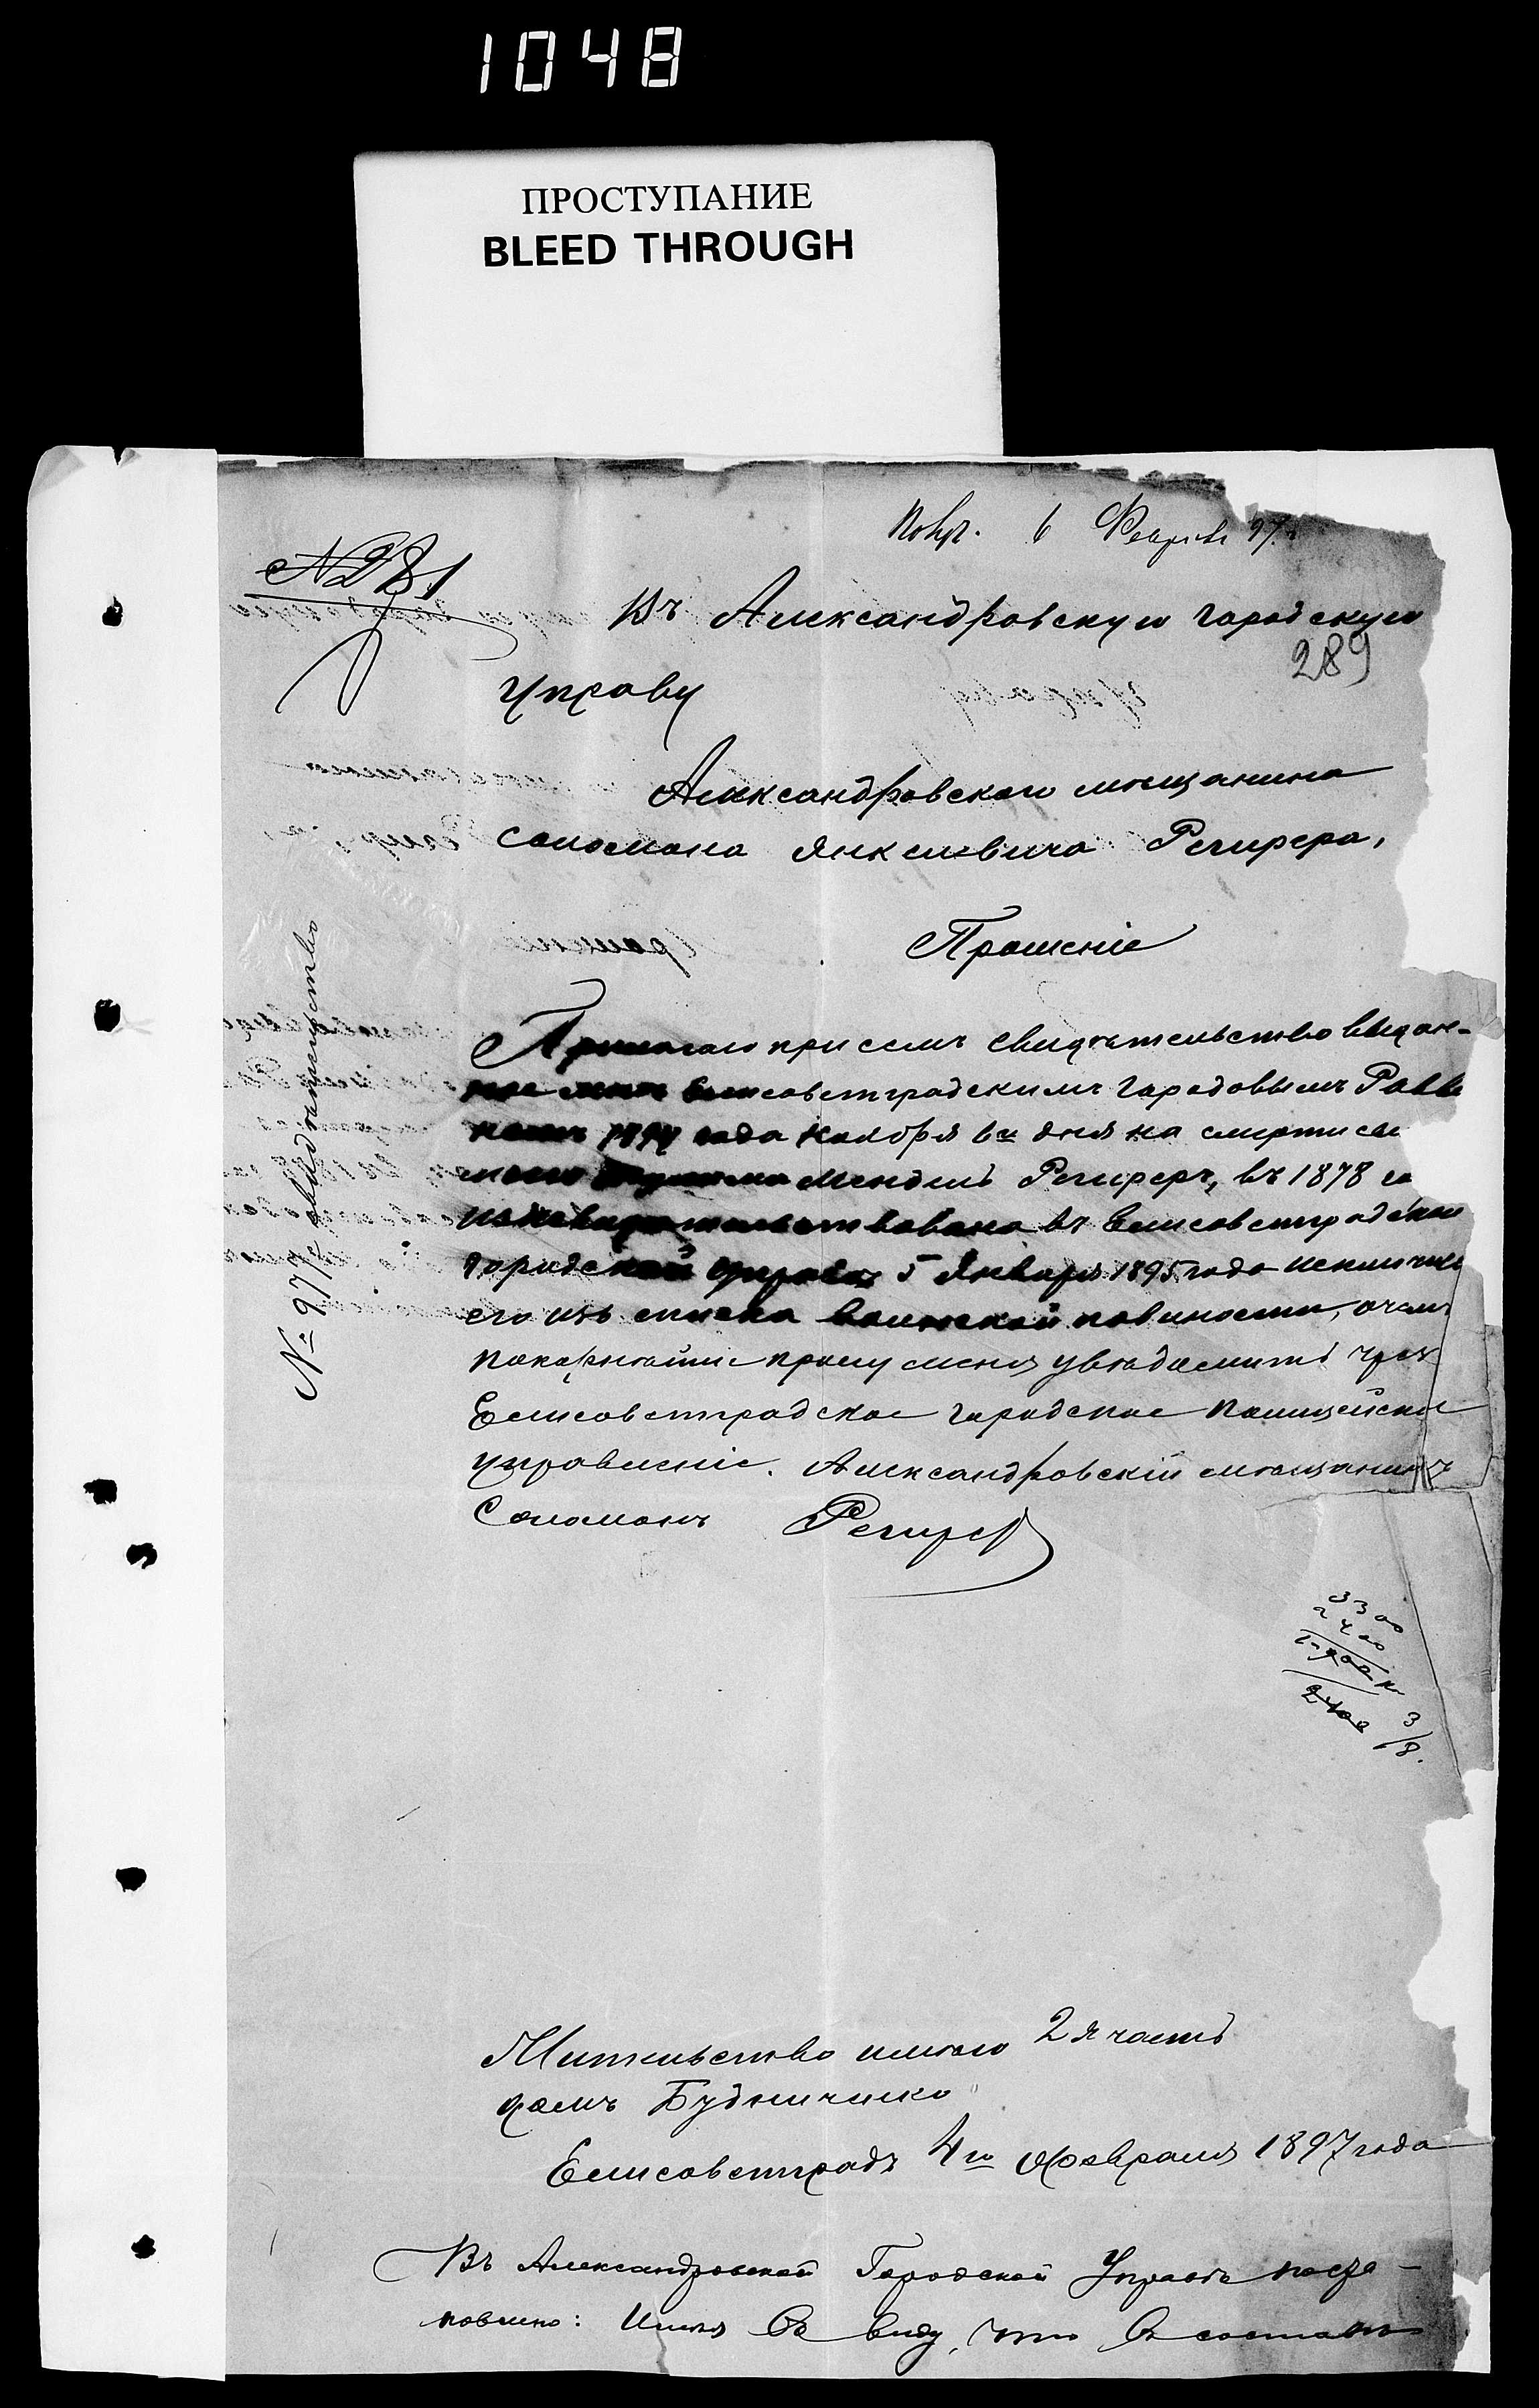 1048
ПРОСТУПАНИЕ
BLEED THROUGH
6 Февраля 97.
№281
Въ Александровскую городскую
289
управу
Александровскаго мѣщанина
Соломона Янкелевича Регирера,
Прошеніе
Прилагаю при семъ свидѣтельство выдан-
ное мнѣ Елисоветградскимъ городовымъ Равви
номъ года Ноября 6го дня на смерти сы
моего Мендель Региреръ, въ 1878 го
въ Елисоветградской
городской управѣ 5 Января 1895 года исключить
его изъ списка воинской повиности, о чемъ
покорнѣйше прошу меня увѣдомить чрез
Елисоветградское городское полицейское
управленіе. Александровскій мѣщанинъ
Соломонъ Регирер
№ 977 свидѣтельство
3300
2400
2400
3/8.
Жительство имѣю 2я часть
домъ Будниченко
Елисоветградъ 4го Февраля 1897 года
Въ Александровской Городской Управѣ поста-
новлено: Имѣя въ виду, что въ составъ